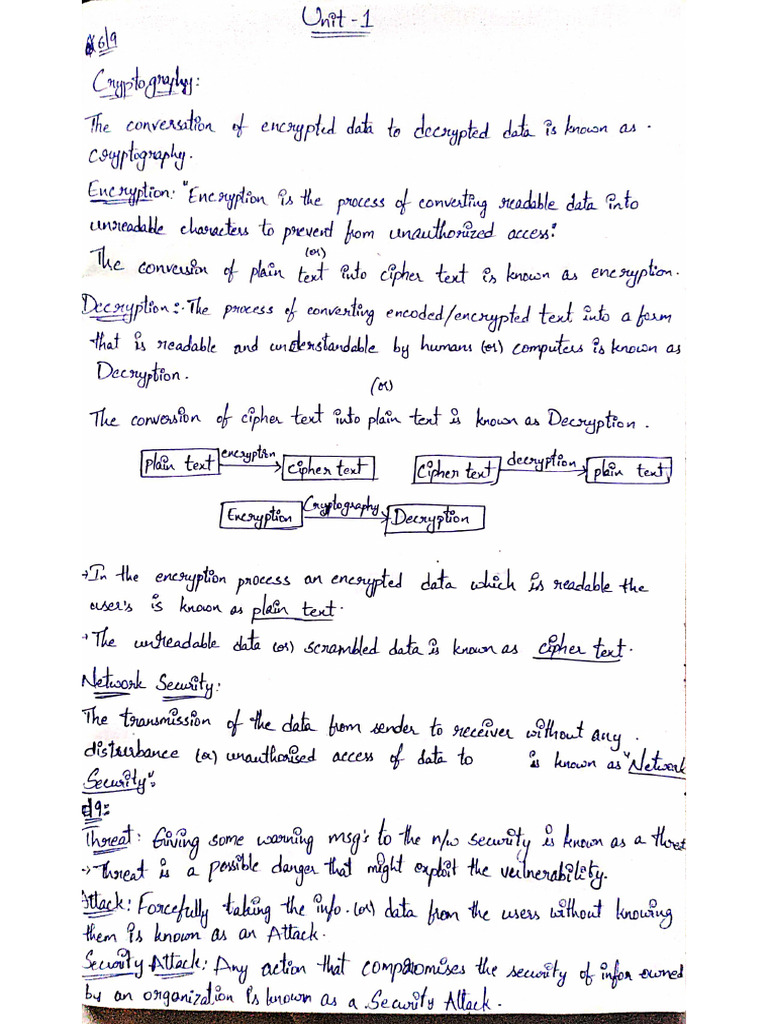 Unit-1
6/9
Cryptography:
The conversation of encrypted data to decrypted data is known as .
cryptography.
Encryption: "Encryption is the process of converting readable data into
unreadable characters to prevent from unauthorized access."
(or)
The conversion of plain text into cipher text is known as encryption.
Decryption:. The process of converting encoded/encrypted text into a form
that is readable and understandable by humans (or) computers is known as
Decryption.
(or)
The conversion of cipher text into plain text is known as Decryption.
plain text encryptin cipher text Cipher text decryption plain text
Encryption Cryptography Decryption
→ In the encryption process an encrypted data which is readable the
user's is known as plain text.
→ The unreadable data (or) scrambled data is known as cipher text.
Network Security:
The transmission of the data from sender to receiver without any .
disturbance (or) unauthorised access of data to is known as "Network
Security".
Threat: Giving some warning msg's to the n/w security is known as a thret
→ Threat is a possible danger that might exploit the vulnerability.
Attack: Forcefully taking the info. (or) data from the users without knowing
them is known as an Attack.
Security Attack: Any action that compromises the security of infor owned
by an organization is known as a Security Attack.